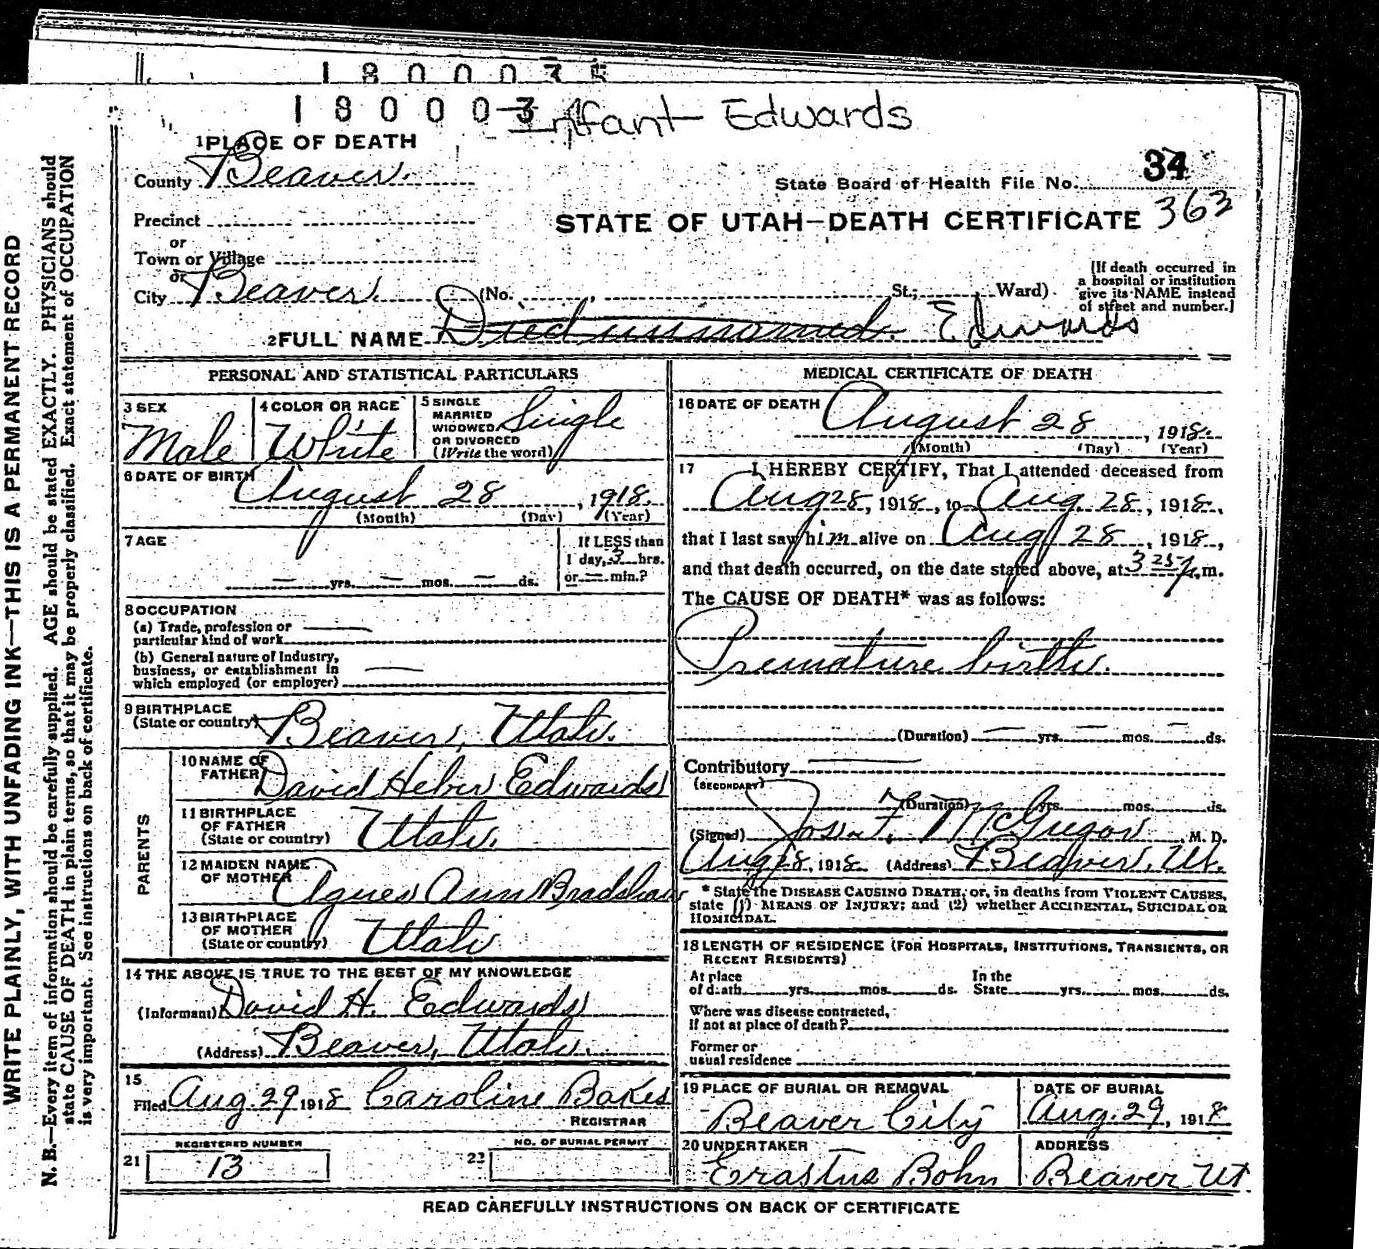 1 8 0 0 0 3 5
1 8 0 0 0 3 4
Infant Edwards
1 PLACE OF DEATH
County Beaver.
State Board of Health File No. 34
Precinct
STATE OF UTAH—DEATH CERTIFICATE 363
or
Town or Village
or
City Beaver. (No. , St.; Ward)
[If death occurred in
a hospital or institution
give its NAME instead
of street and number.]
2 FULL NAME Died unnamed. Edwards
PERSONAL AND STATISTICAL PARTICULARS
3 SEX
Male
4 COLOR OR RACE
White
5 SINGLE
MARRIED
WIDOWED
OR DIVORCED
(Write the word)
Single
6 DATE OF BIRTH
August 28, 1918.
(Month) (Day) (Year)
7 AGE
— yrs. — mos. — ds.
If LESS than
1 day, 3 hrs.
or — min.?
8 OCCUPATION
(a) Trade, profession or
particular kind of work
(b) General nature of Industry,
business, or establishment in
which employed (or employer)
9 BIRTHPLACE
(State or country) Beaver, Utah.
PARENTS
10 NAME OF
FATHER David Heber Edwards
11 BIRTHPLACE
OF FATHER
(State or country) Utah.
12 MAIDEN NAME
OF MOTHER Agnes Ann Bradshaw
13 BIRTHPLACE
OF MOTHER
(State or country) Utah
14 THE ABOVE IS TRUE TO THE BEST OF MY KNOWLEDGE
(Informant) David H. Edwards
(Address) Beaver, Utah.
15
Filed Aug. 29 1918 Caroline Bakes
REGISTRAR
REGISTERED NUMBER
21 13
NO. OF BURIAL PERMIT
22
MEDICAL CERTIFICATE OF DEATH
16 DATE OF DEATH August 28, 1918.
(Month) (Day) (Year)
17 I HEREBY CERTIFY, That I attended deceased from
Aug 28, 1918, to Aug. 28, 1918,
that I last saw him alive on Aug 28, 1918,
and that death occurred, on the date stated above, at 3 25 p.m.
The CAUSE OF DEATH* was as follows:
Premature birth.
(Duration) — yrs. — mos. — ds.
Contributory
(SECONDARY)
(Duration) yrs. mos. ds.
(Signed) McGregor M. D.
Aug 28, 1918. (Address) Beaver, Ut.
* State the DISEASE CAUSING DEATH, or, in deaths from VIOLENT CAUSES,
state (1) MEANS OF INJURY; and (2) whether ACCIDENTAL, SUICIDAL OR
HOMICIDAL.
18 LENGTH OF RESIDENCE (FOR HOSPITALS, INSTITUTIONS, TRANSIENTS, OR
RECENT RESIDENTS)
At place
of death yrs. mos. ds.
In the
State yrs. mos. ds.
Where was disease contracted,
if not at place of death?
Former or
usual residence
19 PLACE OF BURIAL OR REMOVAL
Beaver City
DATE OF BURIAL
Aug. 29, 1918
20 UNDERTAKER
Erastus Bohn
ADDRESS
Beaver Ut
READ CAREFULLY INSTRUCTIONS ON BACK OF CERTIFICATE
WRITE PLAINLY, WITH UNFADING INK—THIS IS A PERMANENT RECORD
N. B.—Every item of information should be carefully supplied. AGE should be stated EXACTLY. PHYSICIANS should
state CAUSE OF DEATH in plain terms, so that it may be properly classified. Exact statement of OCCUPATION
is very important. See instructions on back of certificate.